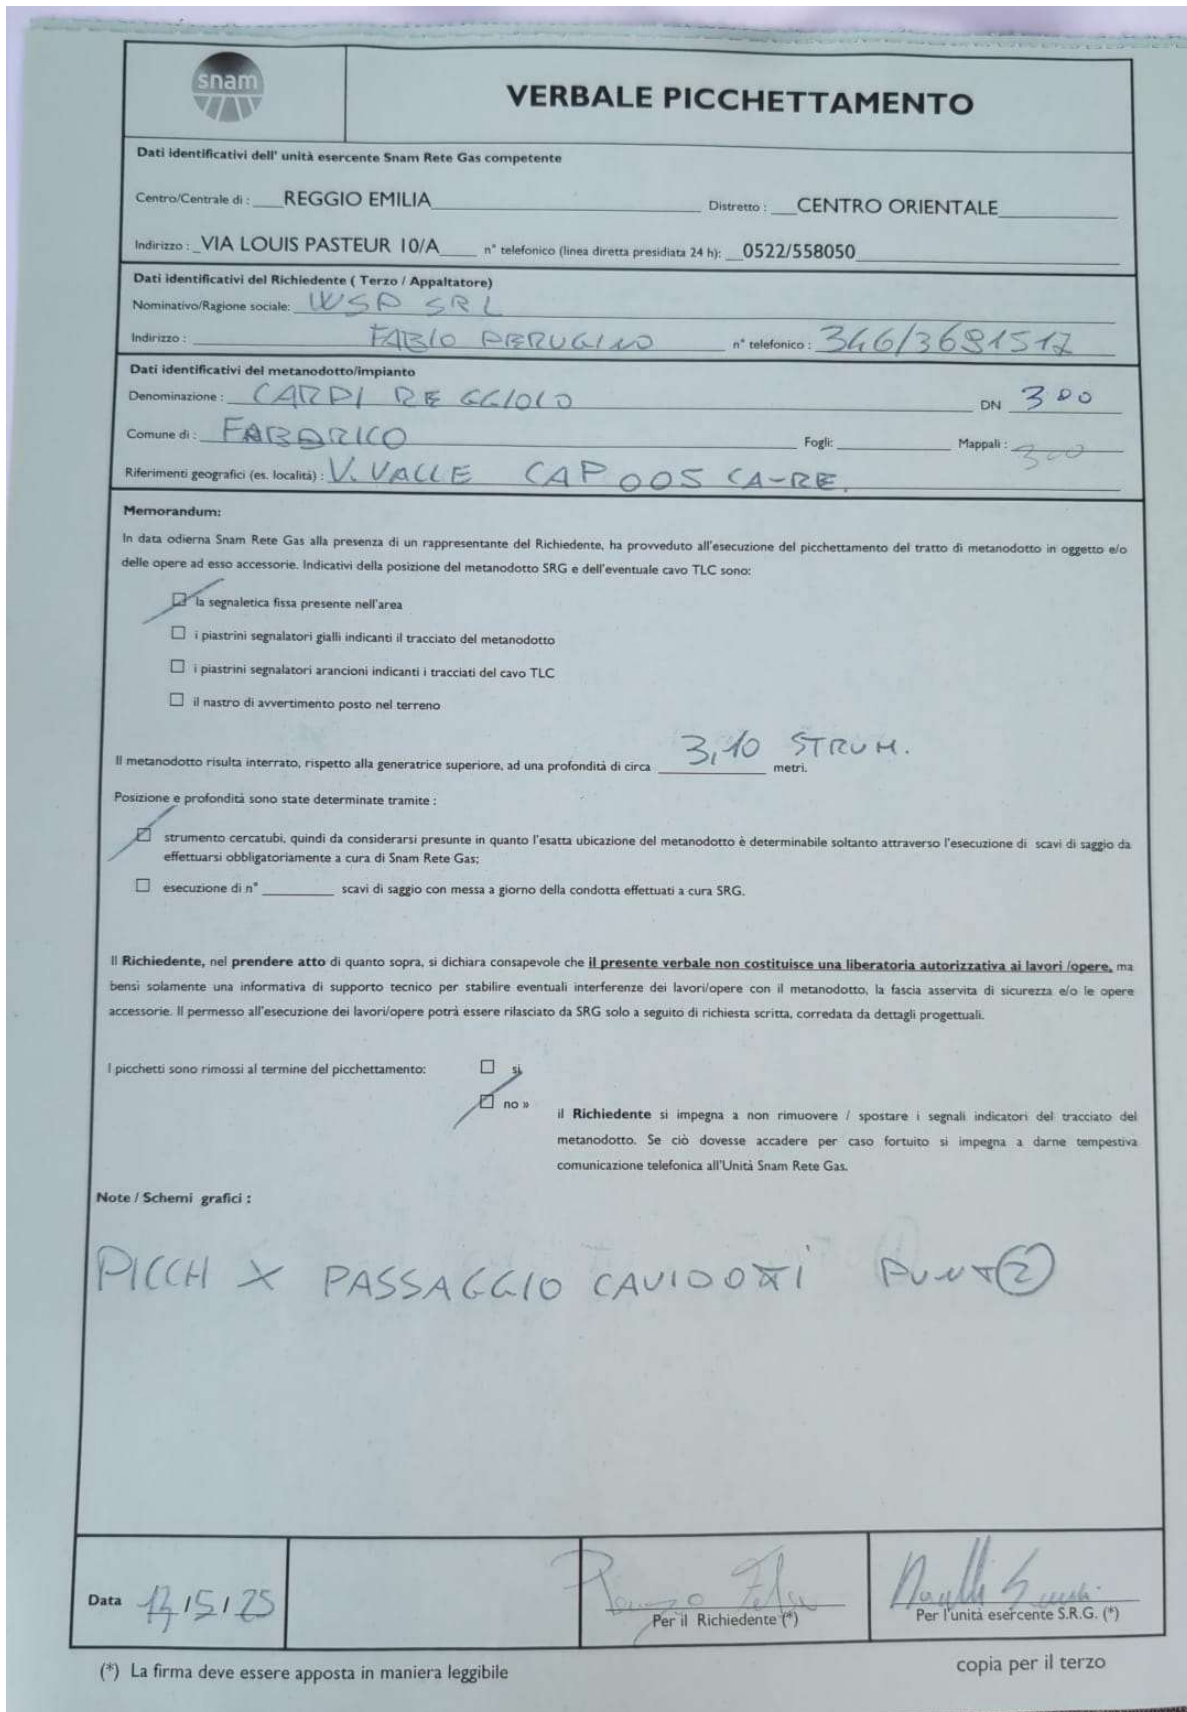 snam
VERBALE PICCHETTAMENTO
Dati identificativi dell' unità esercente Snam Rete Gas competente
Centro/Centrale di : REGGIO EMILIA Distretto : CENTRO ORIENTALE
Indirizzo : VIA LOUIS PASTEUR 10/A n° telefonico (linea diretta presidiata 24 h): 0522/558050
Dati identificativi del Richiedente ( Terzo / Appaltatore)
Nominativo/Ragione sociale: WSP SRL
Indirizzo : FABIO PERUGINO n° telefonico : 346/3681517
Dati identificativi del metanodotto/impianto
Denominazione : CARPI REGGIOLO DN 300
Comune di : FABBRICO Fogli: Mappali : 300
Riferimenti geografici (es. località) : V. VALLE CAP 005 CA-RE.
Memorandum:
In data odierna Snam Rete Gas alla presenza di un rappresentante del Richiedente, ha provveduto all'esecuzione del picchettamento del tratto di metanodotto in oggetto e/o
delle opere ad esso accessorie. Indicativi della posizione del metanodotto SRG e dell'eventuale cavo TLC sono:
la segnaletica fissa presente nell'area
i piastrini segnalatori gialli indicanti il tracciato del metanodotto
i piastrini segnalatori arancioni indicanti i tracciati del cavo TLC
il nastro di avvertimento posto nel terreno
Il metanodotto risulta interrato, rispetto alla generatrice superiore, ad una profondità di circa 3,10 STRUM. metri.
Posizione e profondità sono state determinate tramite :
strumento cercatubi, quindi da considerarsi presunte in quanto l'esatta ubicazione del metanodotto è determinabile soltanto attraverso l'esecuzione di scavi di saggio da
effettuarsi obbligatoriamente a cura di Snam Rete Gas;
esecuzione di n° scavi di saggio con messa a giorno della condotta effettuati a cura SRG.
Il Richiedente, nel prendere atto di quanto sopra, si dichiara consapevole che il presente verbale non costituisce una liberatoria autorizzativa ai lavori /opere, ma
bensì solamente una informativa di supporto tecnico per stabilire eventuali interferenze dei lavori/opere con il metanodotto, la fascia asservita di sicurezza e/o le opere
accessorie. Il permesso all'esecuzione dei lavori/opere potrà essere rilasciato da SRG solo a seguito di richiesta scritta, corredata da dettagli progettuali.
I picchetti sono rimossi al termine del picchettamento: si
no »
il Richiedente si impegna a non rimuovere / spostare i segnali indicatori del tracciato del
metanodotto. Se ciò dovesse accadere per caso fortuito si impegna a darne tempestiva
comunicazione telefonica all'Unità Snam Rete Gas.
Note / Schemi grafici :
PICCH X PASSAGGIO CAVIDOTTI PUNT 2
Data /5/25
Per il Richiedente (*)
Per l'unità esercente S.R.G. (*)
(*) La firma deve essere apposta in maniera leggibile
copia per il terzo